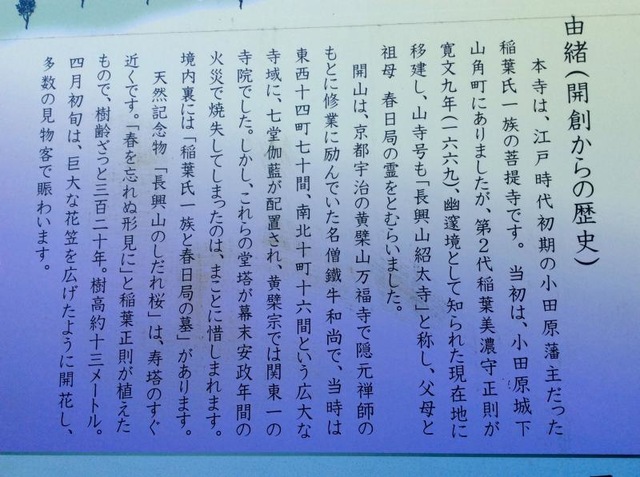 由緒(開創からの歴史)
本寺は、江戸時代初期の小田原藩主だった
稲葉氏一族の菩提寺です。当初は、小田原城下
山角町にありましたが、第2代稲葉美濃守正則が
寛文九年(一六六九)、幽邃境として知られた現在地に
移建し、山寺号も「長興山紹太寺」と称し、父母と
祖母 春日局の霊をとむらいました。
開山は、京都宇治の黄檗山万福寺で隠元禅師の
もとに修業に励んでいた名僧鐵牛和尚で、当時は
東西十四町七十間、南北十町十六間という広大な
寺域に、七堂伽藍が配置され、黄檗宗では関東一の
寺院でした。しかし、これらの堂塔が幕末安政年間の
火災で焼失してしまったのは、まことに惜しまれます。
境内裏には「稲葉氏一族と春日局の墓」があります。
天然記念物「長興山のしだれ桜」は、寿塔のすぐ
近くです。「春を忘れぬ形見に」と稲葉正則が植えた
もので、樹齢ざっと三百二十年。樹高約十三メートル。
四月初旬は、巨大な花笠を広げたように開花し、
多数の見物客で賑わいます。